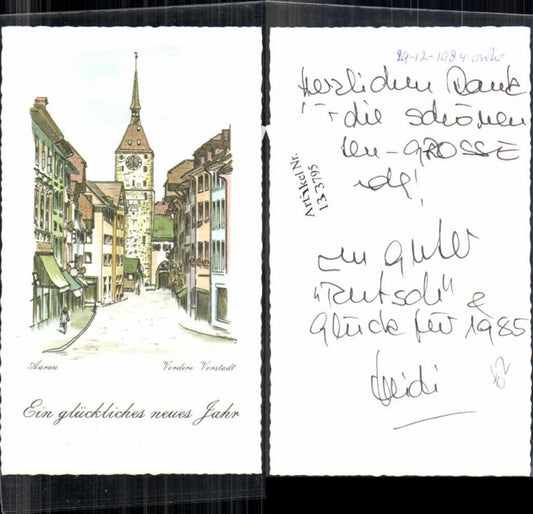 Aarau
Vordere Vorstadt
Ein glückliches neues Jahr
29-12-1984
Herzlichen Dank
für die schönen
GROSSE
guter
"Rutsch" &
Glück für 1985
Heidi
Artikel Nr.
123795